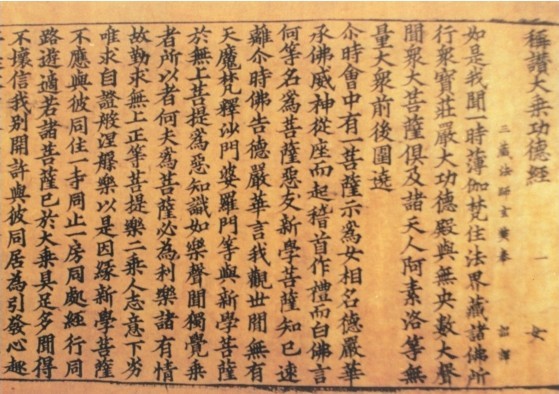 稱讃大乗功德經 一 女
三藏法師玄奘奉 詔譯
如是我聞一時薄伽梵住法界藏諸佛所
行衆寶莊嚴大功德殿與無央數大聲
聞衆大菩薩俱及諸天人阿素洛等無
量大衆前後圍遶
尒時會中有一菩薩示爲女相名德嚴華
承佛威神從座而起稽首作禮而白佛言
何等名爲菩薩惡友新學菩薩知已速
離尒時佛告德嚴華言我觀世間無有
天魔梵釋沙門婆羅門等與新學菩薩
於無上菩提爲惡知識如樂聲聞獨覺乗
者所以者何夫爲菩薩必為利樂諸有情
故勤求無上正等菩提樂二乗人志意下劣
唯求自證般涅槃樂以是因緣新學菩薩
不應與彼同住一寺同止一房同處經行同
路遊適若諸菩薩已於大乗具足多聞得
不壞信我別開許與彼同居為引發心趣